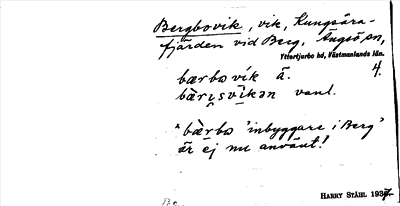 Bergbovik, vik, Kungsåra-
fjärden vid Berg, Ängsö sn,
Yttertjurbo hd, Västmanlands län.
4.
bærbovík ä.
bærɩsvìkən vanl.
*bærbo 'inbyggare i Berg'
är ej nu använt!
HARRY STÅHL 1937.
Be